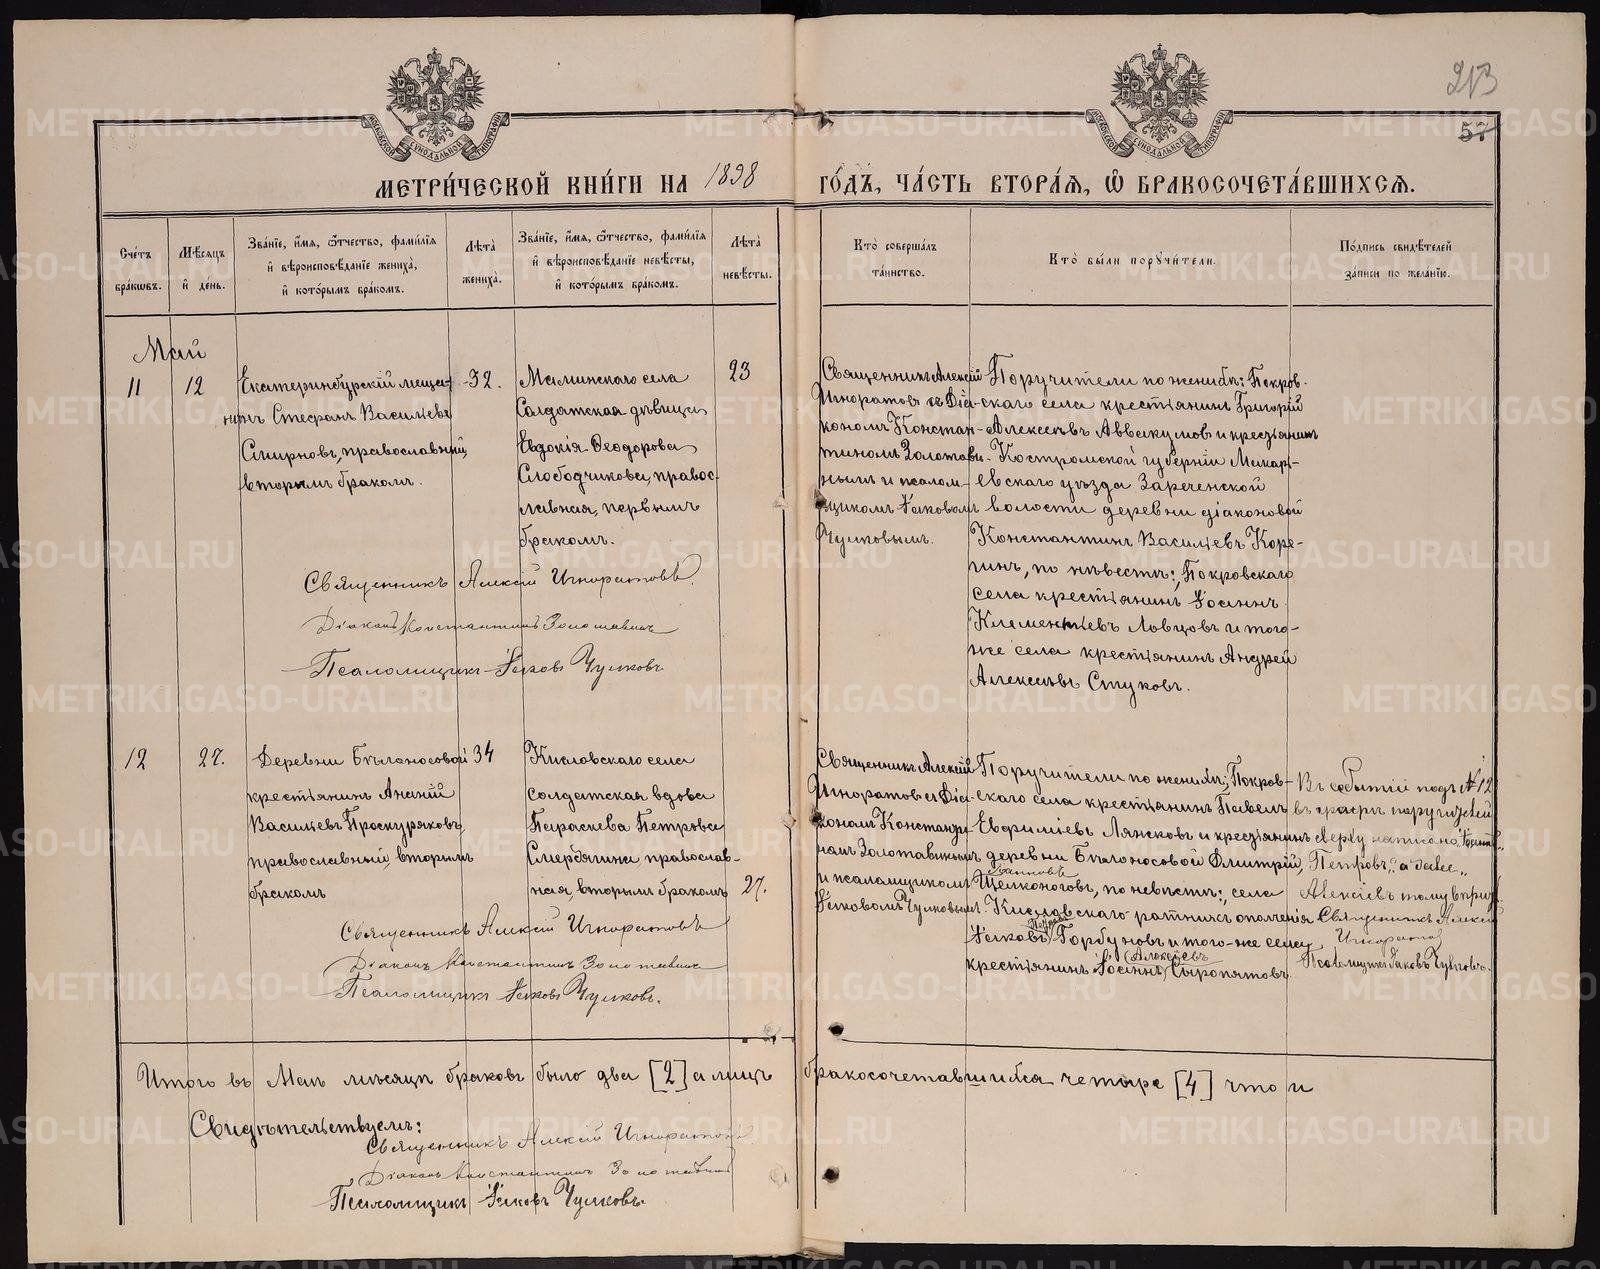 213
57
МОСКОВСКОЙ СУНОДАЛЬНОЙ ТИПОГРАФІИ
МОСКОВСКОЙ СУНОДАЛЬНОЙ ТИПОГРАФІИ
МЕТРИ́ЧЕСКОЙ КНИ́ГИ НА 1898 ГО́ДЪ, ЧА́СТЬ ВТОРА́Я, Ѽ БРАКОСОЧЕТА́ВШИХСЯ.
Сче́тъ бра́кѡвъ.
Мѣ́сяцъ и҆ де́нь.
Зва́нїе, и҆́мя, ѻ҆́тчество, фами́лїя и҆ вѣроисповѣ́данїе жениха̀, и҆ кото́рымъ бра́комъ.
Лѣ́та жениха̀.
Зва́нїе, и҆́мя, ѻ҆́тчество, фами́лїя и҆ вѣроисповѣ́данїе невѣ́сты, и҆ кото́рымъ бра́комъ.
Лѣ́та невѣ́сты.
Кто̀ соверша́лъ та́инство.
Кто̀ бы́ли порꙋчи́тели.
По́дпись свидѣ́телей за́писи по жела́нїю.
Май
11
12
Екатеринбургскій меща-
нинъ Стефанъ Васильевъ
Смирновъ, православный,
вторымъ бракомъ.
32.
Маминскаго села
Солдатская дѣвица
Евдокія Ѳеодорова
Слободчикова, правос-
лавная, первымъ
бракомъ.
23
Священникъ Алексій
Игноратовъ съ Діа-
кономъ Констан-
тиномъ Золотави-
нымъ и псалом-
щикомъ Іаковомъ
Чулковымъ.
Поручители по женихѣ: Покров-
скаго села крестьянинъ Григорій
Алексѣевъ Аввакумовъ и крестьянинъ
Костромской губерніи Макарь-
евскаго уѣзда Зареченской
волости деревни Діаконовой
Константинъ Васильевъ Коре-
гинъ, по невѣстѣ: Покровскаго
села крестьянинъ Іоаннъ
Клементьевъ Ловцовъ и того-
же села крестьянинъ Андрей
Алексѣевъ Стуковъ.
Священникъ Алексій Игноратовъ.
Діаконъ Константинъ Золотавинъ
Псаломщикъ Іаковъ Чулковъ
12
27.
Деревни Бѣлоносовой
крестьянинъ Ананій
Васильевъ Проскуряковъ,
православный, вторымъ
бракомъ
34
Кисловскаго села
солдатская вдова
Параскева Петрова
Смердягина православ-
ная, вторымъ бракомъ
27.
Священникъ Алексій
Игноратовъ съ Діа-
кономъ Константи-
номъ Золотавинымъ
и псаломщикомъ
Іаковомъ Чулковымъ.
Поручители по женихѣ: Покров-
скаго села крестьянинъ Павелъ
Евфиміевъ Лясковъ и крестьянинъ
деревни Бѣлоносовой Димитрій
Іоанновъ
Щелконоговъ, по невѣстѣ: села
Кисловскаго ратникъ ополченія
Петровъ
Іаковъ Горбуновъ и того-же села
Алексѣевъ
крестьянинъ Іоаннъ Сыропятовъ
Въ событіи подъ № 12
въ графѣ поручителей
сверху написано
„Петровъ“, а далѣе „
Алексѣевъ тому вѣрить
Священникъ Алексій
Игноратовъ
Псаломщикъ Іаковъ Чулковъ.
Священникъ Алексій Игноратовъ
Діаконъ Константинъ Золотавинъ
Псаломщикъ Іаковъ Чулковъ.
Итого въ Маѣ мѣсяцѣ браковъ было два [2] а лицъ бракосочетавшихся четыре [4] что и
Свидѣтельствуемъ:
Священникъ Алексій Игноратовъ
Діаконъ Константинъ Золотавинъ
Псаломщикъ Іаковъ Чулковъ.
METRIKI.GASO-URAL.RU